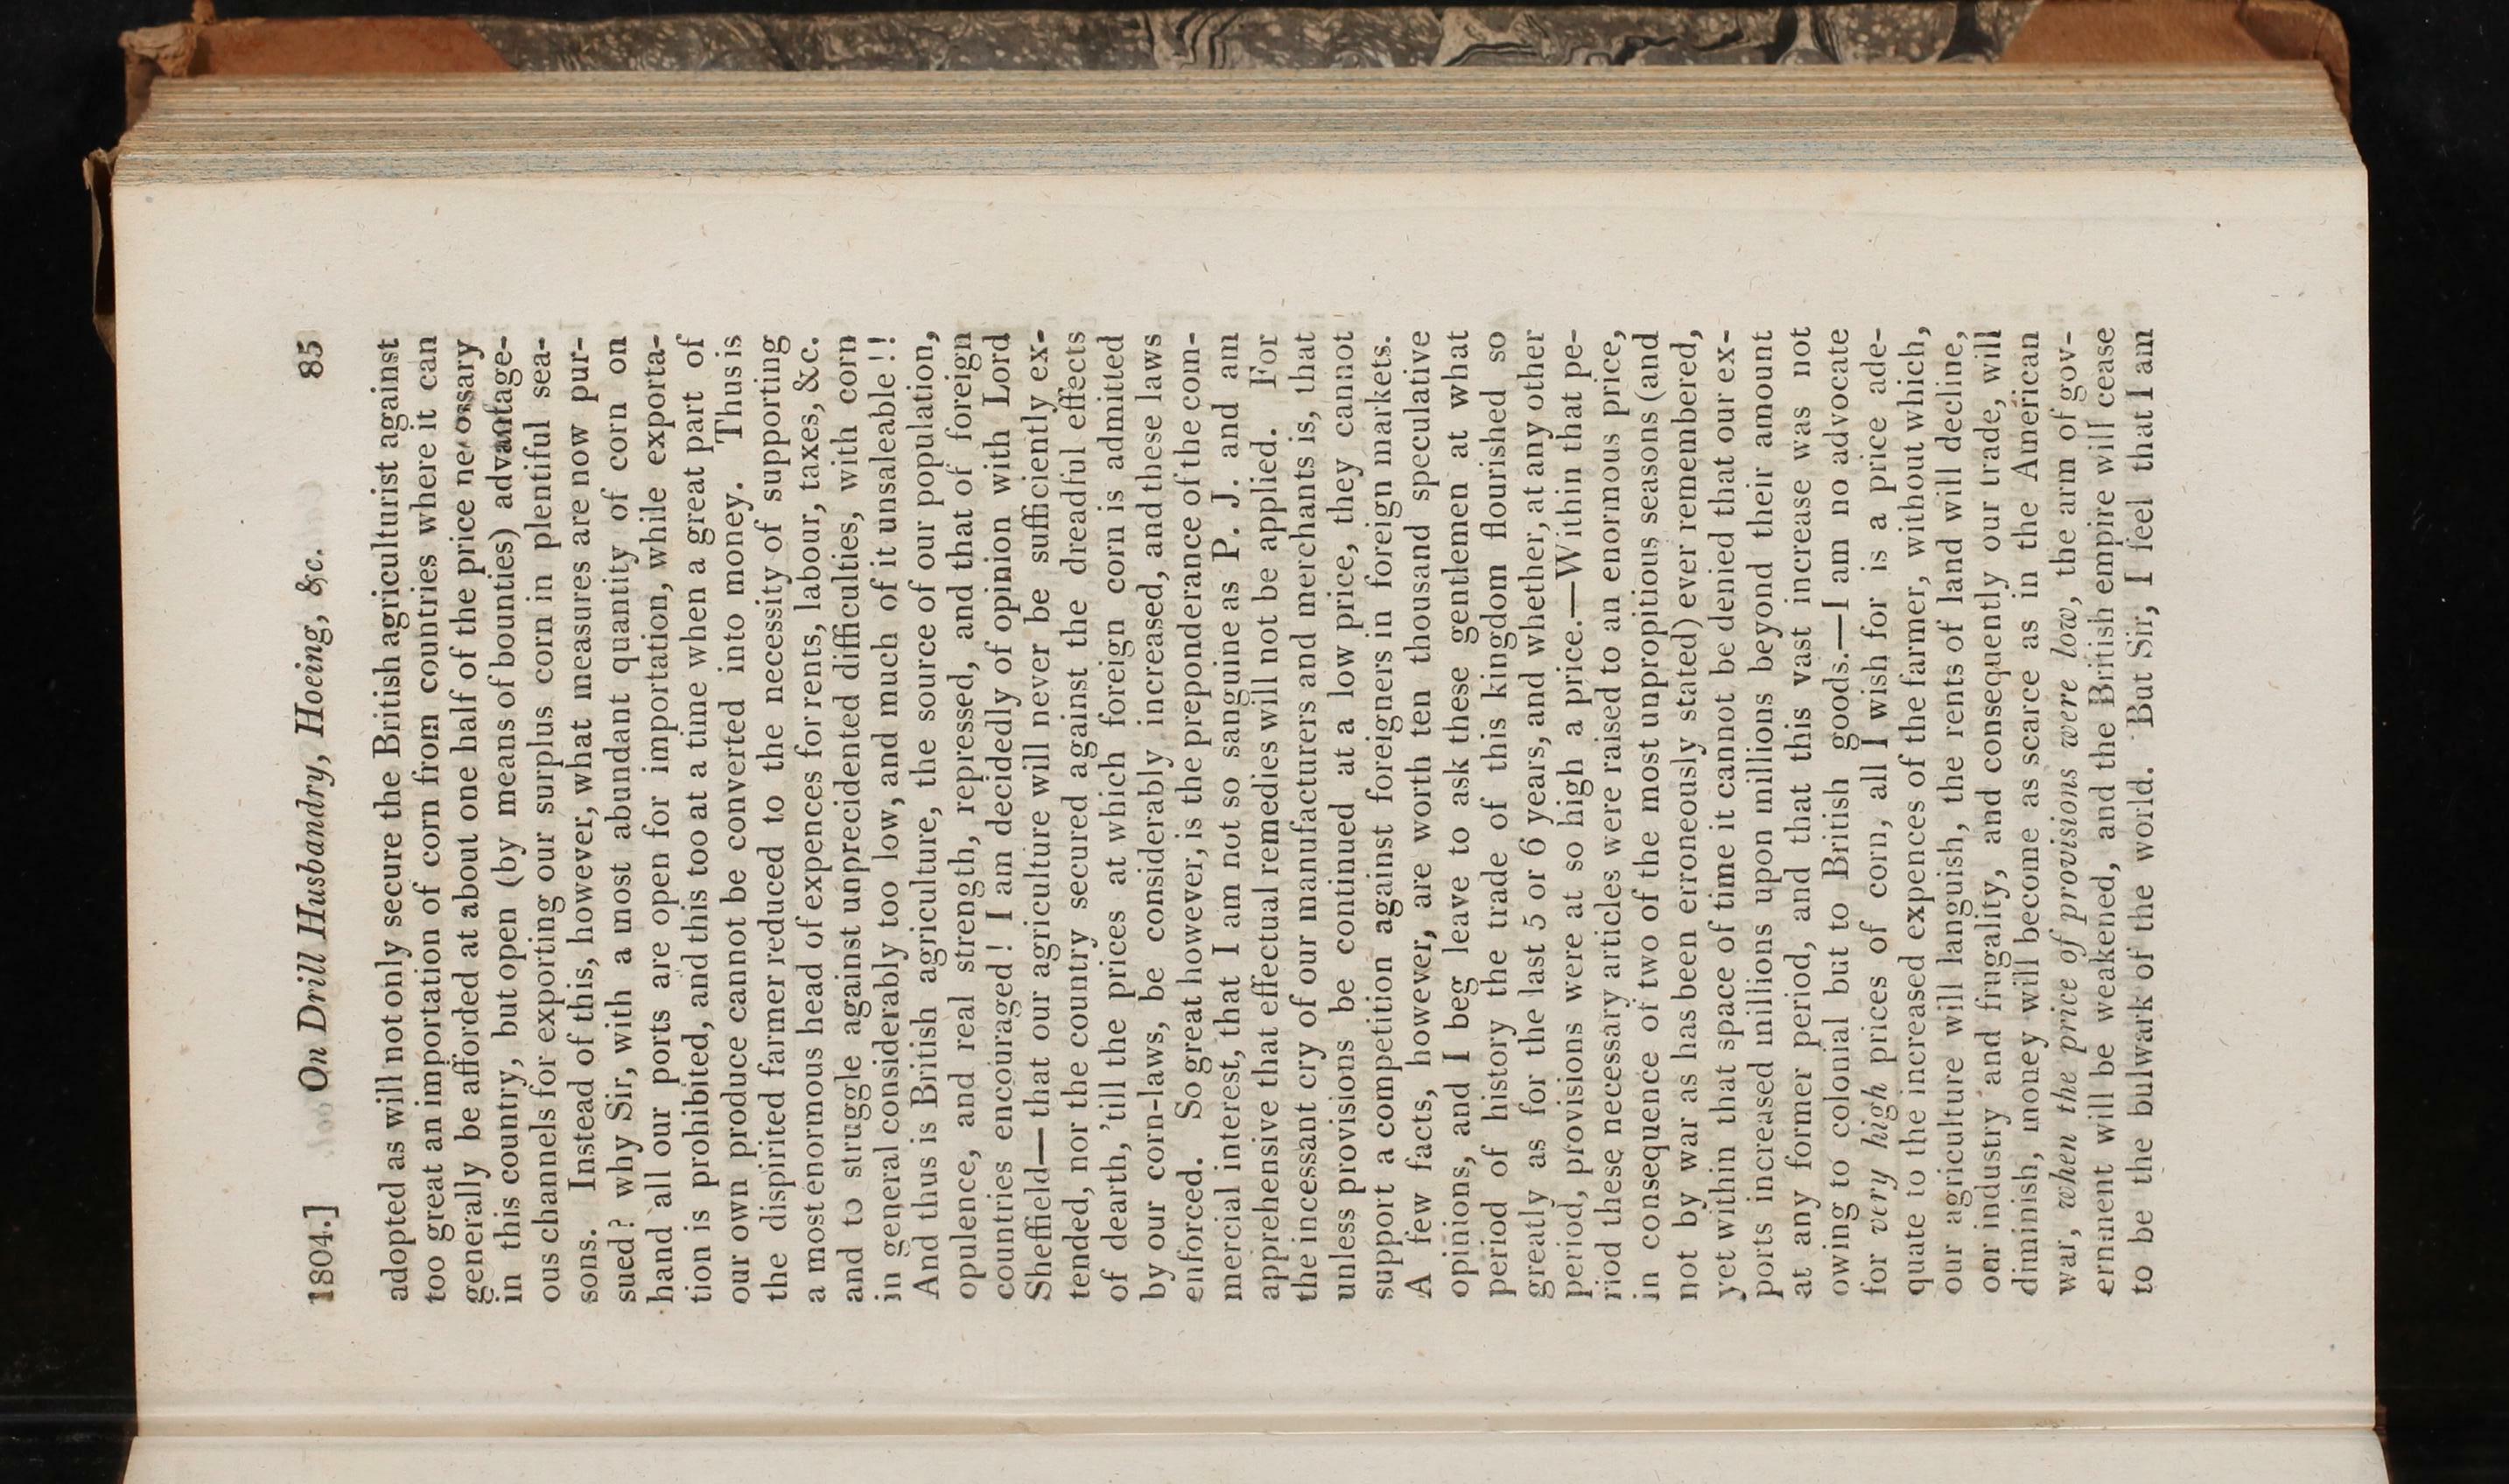 1804.] On Drill Husbandry, Hoeing, &c. 85
adopted as will not only secure the British agriculturist against
too great an importation of corn from countries where it can
generally be afforded at about one half of the price necessary
in this country, but open (by means of bounties) advantage-
ous channels for exporting our surplus corn in plentiful sea-
sons. Instead of this, however, what measures are now pur-
sued? why Sir, with a most abundant quantity of corn on
hand all our ports are open for importation, while exporta-
tion is prohibited, and this too at a time when a great part of
our own produce cannot be converted into money. Thus is
the dispirited farmer reduced to the necessity of supporting
a most enormous head of expences for rents, labour, taxes, &c.
and to struggle against unprecidented difficulties, with corn
in general considerably too low, and much of it unsaleable!!
And thus is British agriculture, the source of our population,
opulence, and real strength, repressed, and that of foreign
countries encouraged! I am decidedly of opinion with Lord
Sheffield—that our agriculture will never be sufficiently ex-
tended, nor the country secured against the dreadful effects
of dearth, 'till the prices at which foreign corn is admitted
by our corn-laws, be considerably increased, and these laws
enforced. So great however, is the preponderance of the com-
mercial interest, that I am not so sanguine as P. J. and am
apprehensive that effectual remedies will not be applied. For
the incessant cry of our manufacturers and merchants is, that
unless provisions be continued at a low price, they cannot
support a competition against foreigners in foreign markets.
A few facts, however, are worth ten thousand speculative
opinions, and I beg leave to ask these gentlemen at what
period of history the trade of this kingdom flourished so
greatly as for the last 5 or 6 years, and whether, at any other
period, provisions were at so high a price.—Within that pe-
riod these necessary articles were raised to an enormous price,
in consequence of two of the most unpropitious seasons (and
not by war as has been erroneously stated) ever remembered,
yet within that space of time it cannot be denied that our ex-
ports increased millions upon millions beyond their amount
at any former period, and that this vast increase was not
owing to colonial but to British goods.—I am no advocate
for very high prices of corn, all I wish for is a price ade-
quate to the increased expences of the farmer, without which,
our agriculture will languish, the rents of land will decline,
our industry and frugality, and consequently our trade, will
diminish, money will become as scarce as in the American
war, when the price of provisions were low, the arm of gov-
ernment will be weakened, and the British empire will cease
to be the bulwark of the world. But Sir, I feel that I am